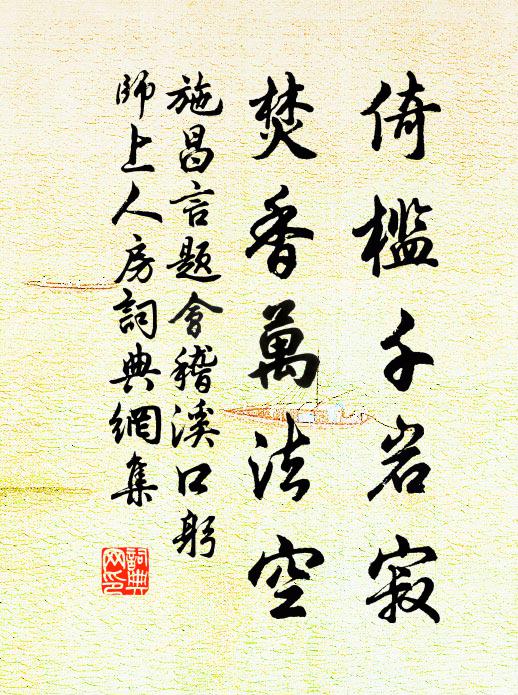 倚檻千岩寂
焚香萬法空
施昌言題會稽溪口躬
師上人房詞典網集
詞典
网印